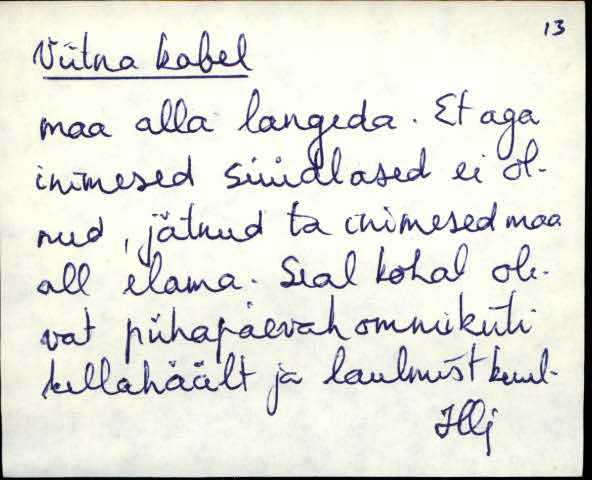 13
Viitna kabel
maa alla langeda. Et aga
inimesed süüdlased ei ol-
nud, jätnud ta inimesed maa
all elama. Seal kohal ole-
vat pühapäevahommikuti
kellahäält ja laulmist kuul-